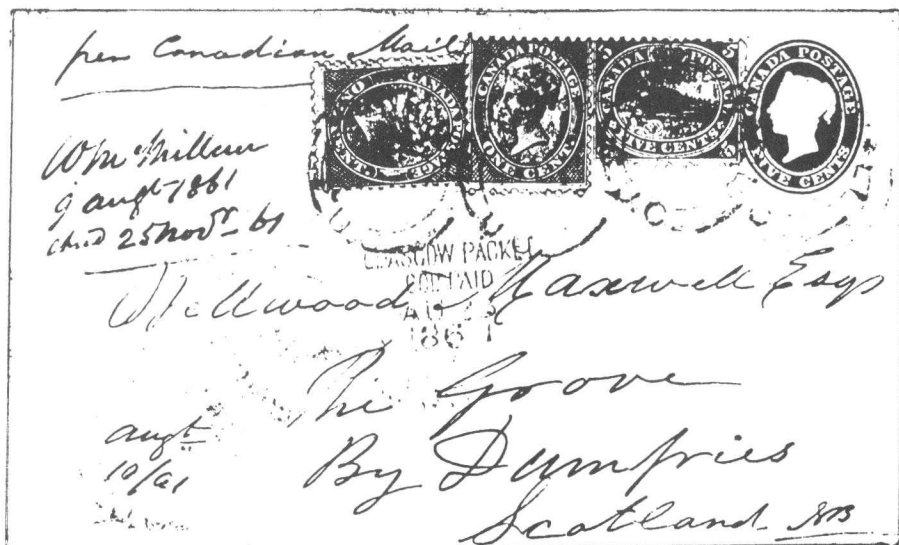 per Canadian Mail
CANADA POSTAGE
ONE CENT
CANADA POSTAGE
ONE CENT
5 CANADA POSTAGE 5
FIVE CENTS
CANADA POSTAGE
FIVE CENTS
Wm Millan
9 augt 1861
25 Novr 61
GLASGOW PACKET
PAID
AU 
1861
Wellwood Maxwell Esqr
The Groove
By Dumfries
Scotland NB
augt
10/61